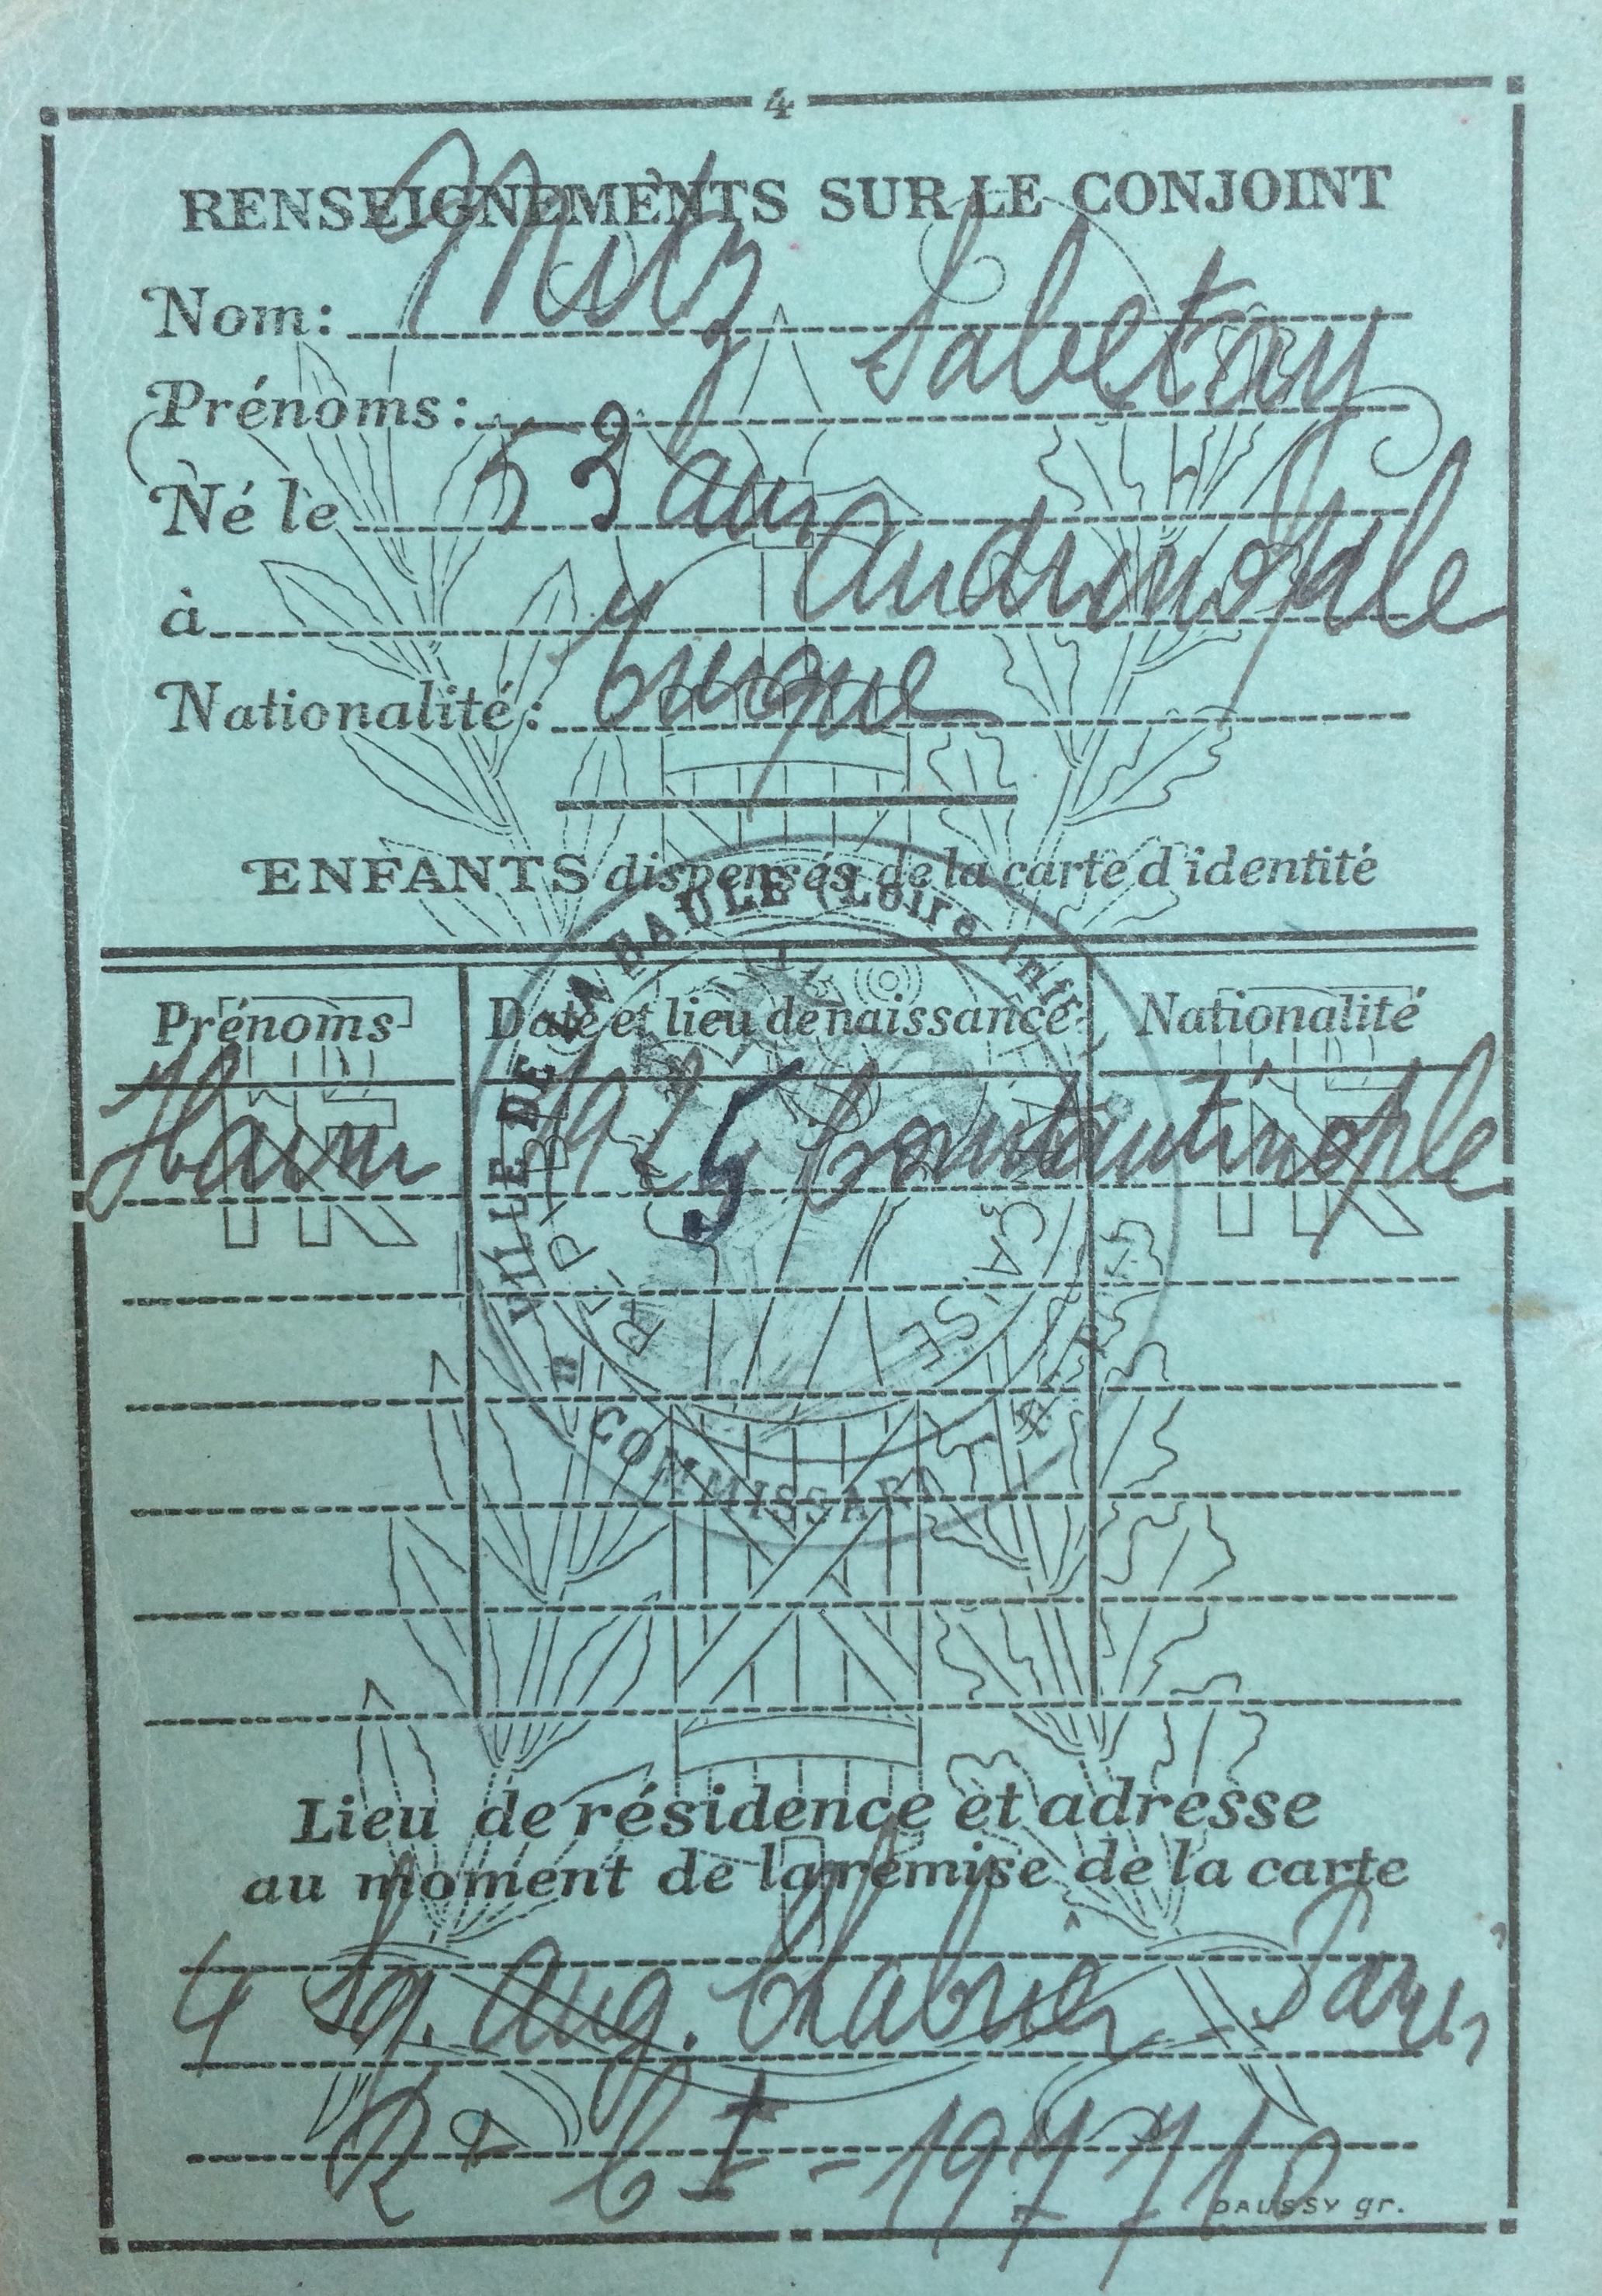 4
RENSEIGNEMENTS SUR LE CONJOINT
Nom: Mitz
Prénoms: Sabetay
Né le 53 ans
à Andrinople
Nationalité: turque
ENFANTS dispensés de la carte d'identité
Prénoms Date et lieu de naissance Nationalité
Haim 1925 Constantinople
VILLE DE LA BAULE (Loire Infre)
COMMISSARIAT
Lieu de résidence et adresse
au moment de la remise de la carte
4 Sq. Aug. Chabrier Paris
DAUSSY gr.